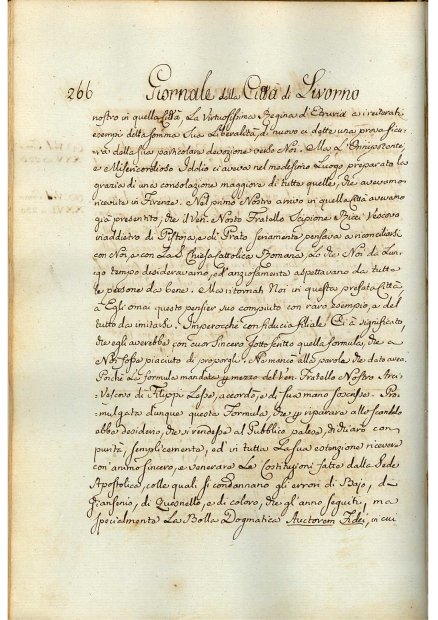 266 Giornale della Città di Livorno
nostro in quella Città, La Virtuosissima Regina d'Etruria a i reiterati
esempi della somma sua Liberalità, di nuovo ci dette una prova sicu-
ra della sua particolare devozione verso Noi. Ma L'Onnipotente,
e Misericordioso Iddio ci aveva nel medesimo Luogo preparato la
grazia di una consolazione maggiore di tutte quelle, che avevamo
ricevute in Firenze. Nel primo Nostro arrivo in quella Città avevamo
già presentito, che il Ven. Nostro Fratello Scipione Ricci Vescovo
in addietro di Pistoja, e di Prato seriamente pensava a riconciliarsi
con Noi, e con La S. Chiesa Cattolica Romana, Lo che Noi da Lun-
go tempo desideravamo, ed anziosamente aspettavano da tutte
le persone da bene. Ma ritornati Noi in questa prefata Città,
Egli omai questo pensier suo compiuto con raro esempio, e del
tutto da imitarsi. Imperocchè con fiducia filiale Ci à significato,
che egli averebbe con cuor sincero sottoscritto quella formula, che a
Noi fosse piaciuto di proporgli. Nè mancò alla parola che data aveva
Poichè La formula mandata p mezzo del Ven. Fratello Nostro Arci-
Vescovo di Filippi Lesse, accordò, e di sua mano soscrisse. Pro-
mulgata dunque questa Formula, che p riparare allo scandolo
ebbe desiderio, che si rendesse al Pubblico palese, dichiarò con
purità, semplicemente, ed' in tutta La sua estenzione ricevere
con animo sincero, e venerare Le Costituzioni fatte dalla Sede
Apostolica, colle quali si condannano gli errori di Bajo, di
Giansenio, di Quesnello, e di coloro, che gl'anno seguiti, ma
specialmente La Bolla Dogmatica Auctorem Fidei, in cui